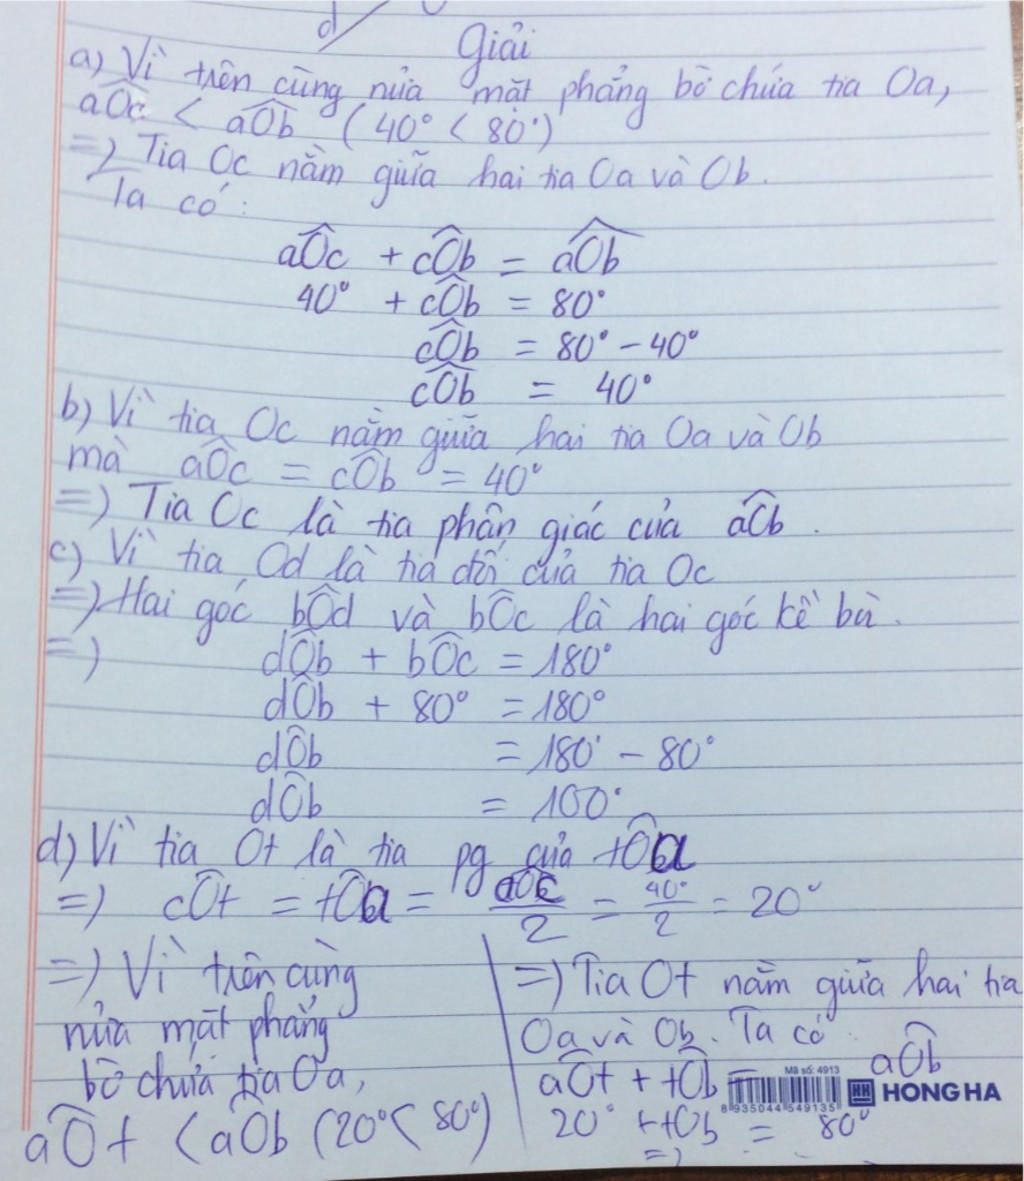 d/
Giải
a) Vì trên cùng nửa mặt phẳng bờ chứa tia Oa,
aÔc < aÔb (40° < 80°)
=) Tia Oc nằm giữa hai tia Oa và Ob.
Ta có:
aÔc + cÔb = aÔb
40° + cÔb = 80°
cÔb = 80° - 40°
cÔb = 40°
b) Vì tia Oc nằm giữa hai tia Oa và Ob
mà aÔc = cÔb = 40°
=) Tia Oc là tia phân giác của aÔb.
c) Vì tia Od là tia đối của tia Oc
=) Hai góc bÔd và bÔc là hai góc kề bù.
=) dÔb + bÔc = 180°
dÔb + 80° = 180°
dÔb = 180° - 80°
dÔb = 100°
d) Vì tia Ot là tia pg của tÔa
=) cÔt = tÔa = aÔc/2 = 40°/2 = 20°
=) Vì trên cùng
nửa mặt phẳng
bờ chứa tia Oa,
aÔt < aÔb (20° < 80°)
=) Tia Ot nằm giữa hai tia
Oa và Ob. Ta có:
aÔt + tÔb = aÔb
20° + tÔb = 80°
=)
Mã số: 4913
8 935044 549135
HH HONG HA